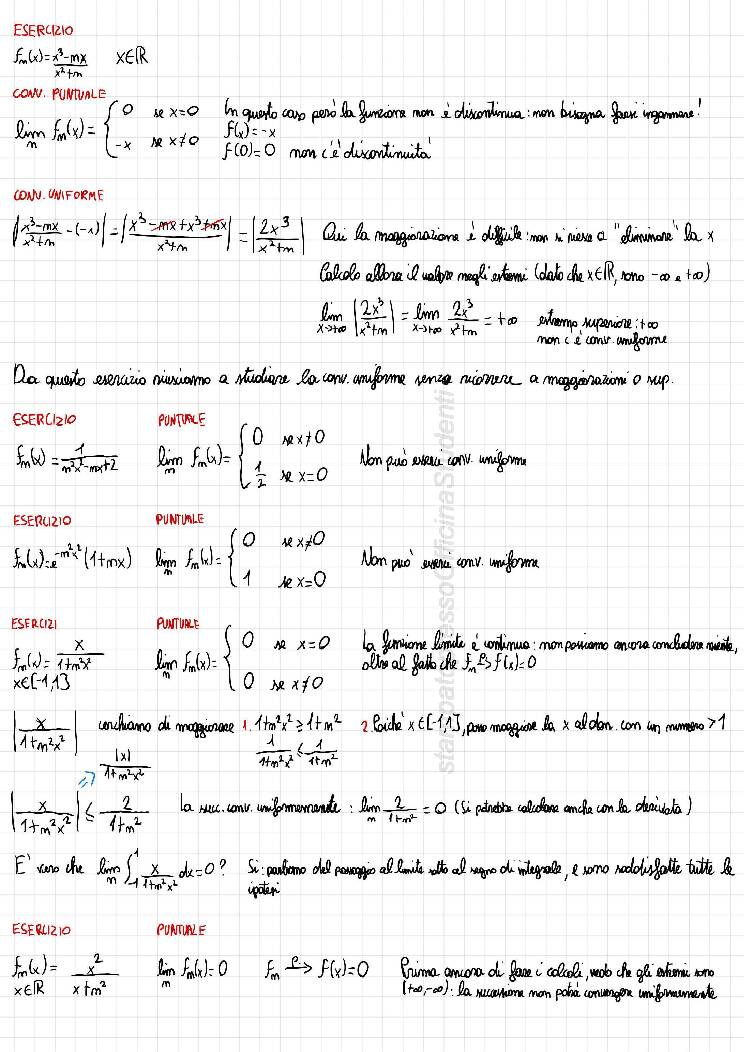 ESERCIZIO
fₙ(x) = (x³-nx)/(x²+n)   x∈ℝ
CONV. PUNTUALE
lim_n fₙ(x) = { 0 se x=0   In questo caso però la funzione non è discontinua: non bisogna farsi ingannare!
-x se x≠0   f(x)=-x
f(0)=0 non c'è discontinuità
CONV. UNIFORME
|(x³-nx)/(x²+n) - (-x)| = |(x³-nx+x³+nx)/(x²+n)| = |2x³/(x²+n)|   Qui la maggiorazione è difficile: non si riesce a "eliminare" la x
Calcolo allora il valore negli estremi (dato che x∈ℝ, sono -∞ e +∞)
lim_{x→+∞} |2x³/(x²+n)| = lim_{x→+∞} 2x³/(x²+n) = +∞   estremo superiore: +∞
non c'è conv. uniforme
Da questo esercizio riusciamo a studiare la conv. uniforme senza ricorrere a maggiorazioni o sup.
ESERCIZIO   PUNTUALE
fₙ(x) = 1/(n²x²-nx+2)   lim_n fₙ(x) = { 0 se x≠0   Non può esserci conv. uniforme
1/2 se x=0
ESERCIZIO   PUNTUALE
fₙ(x)=e^(-n²x²)(1+nx)   lim_n fₙ(x) = { 0 se x≠0   Non può esserci conv. uniforme
1 se x=0
ESERCIZI   PUNTUALE
fₙ(x) = x/(1+n²x²)   lim_n fₙ(x) = { 0 se x=0   La funzione limite è continua: non possiamo ancora concludere niente,
x∈[-1,1]   0 se x≠0   oltre al fatto che fₙ →ᵖ f(x)=0
|x/(1+n²x²)| cerchiamo di maggiorare 1. 1+n²x² ≥ 1+n²   2. Poiché x∈[-1,1], posso maggiorare la x al den. con un numero >1
|x|/(1+n²x²)   1/(1+n²x²) ≤ 1/(1+n²)
|x/(1+n²x²)| ≤ 2/(1+n²)   La succ. conv. uniformemente: lim_n 2/(1+n²) = 0 (Si potrebbe calcolare anche con la derivata)
E' vero che lim_n ∫₋₁¹ x/(1+n²x²) dx = 0?   Si: parliamo del passaggio al limite sotto al segno di integrale, e sono soddisfatte tutte le
ipotesi
ESERCIZIO   PUNTUALE
fₙ(x) = x²/(x+n²)   lim_n fₙ(x)=0   fₙ →ᵖ f(x)=0   Prima ancora di fare i calcoli, vedo che gli estremi sono
x∈ℝ   (+∞,-∞): la successione non potrà convergere uniformemente